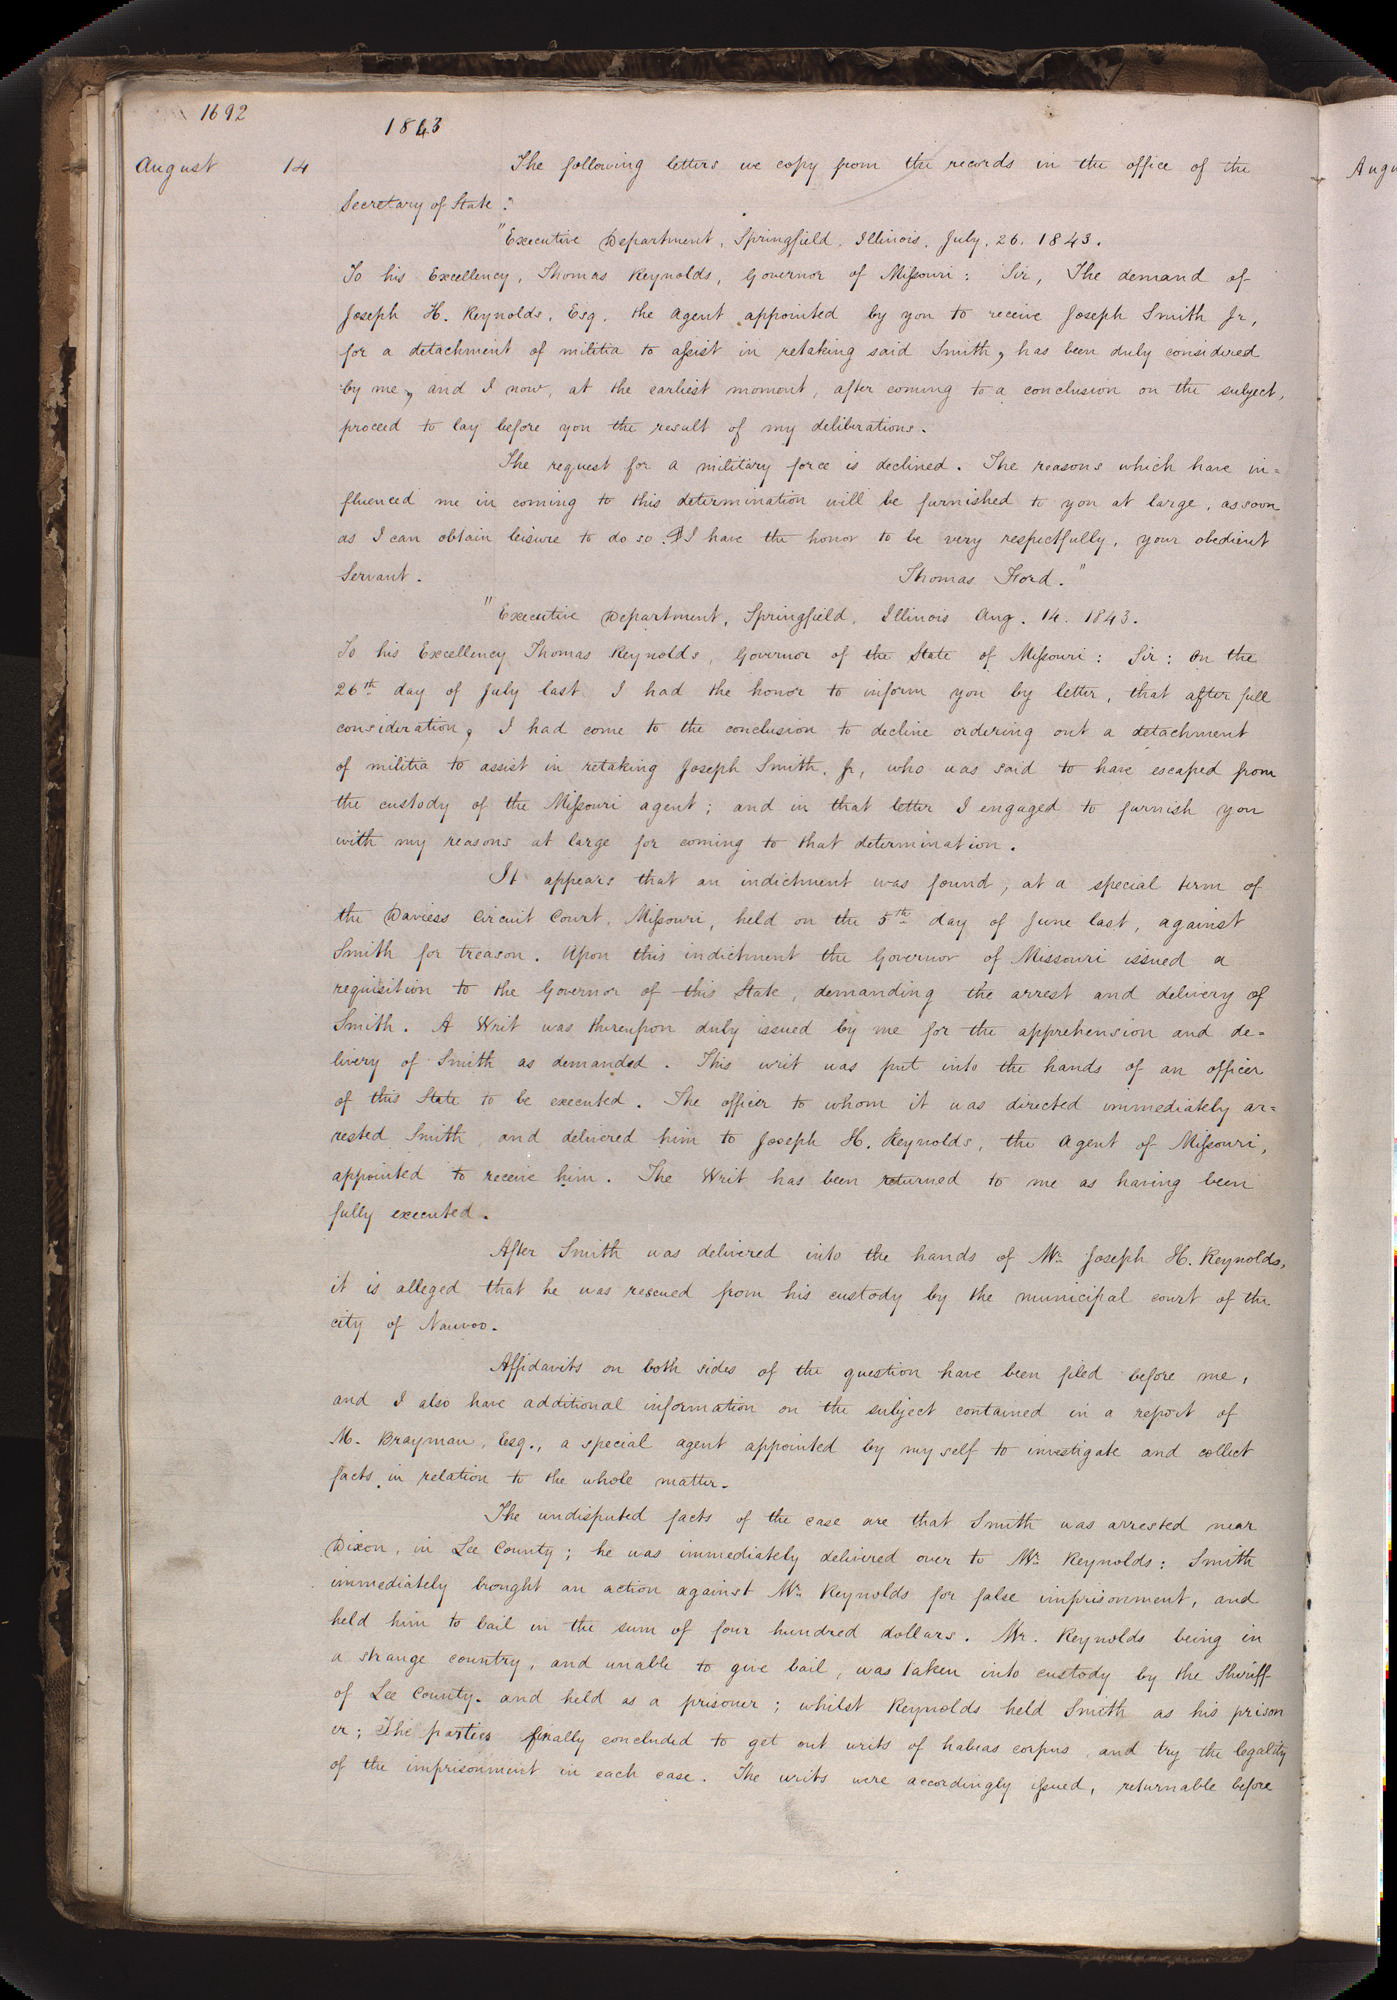 1692
1843
August 14 The following letters we copy from the records in the office of the
Secretary of State:
"Executive Department, Springfield, Illinois, July, 26. 1843.
To his Excellency, Thomas Reynolds, Governor of Missouri: Sir, The demand of
Joseph H. Reynolds, Esq. the Agent appointed by you to receive Joseph Smith Jr,
for a detachment of militia to assist in retaking said Smith, has been duly considered
by me, and I now, at the earliest moment, after coming to a conclusion on the subject,
proceed to lay before you the result of my deliberations.
The request for a military force is declined. The reasons which have in=
fluenced me in coming to this determination will be furnished to you at large, as soon
as I can obtain leisure to do so. ¶ I have the honor to be very respectfully, your obedient
Servant. Thomas Ford."
"Executive Department, Springfield, Illinois Aug. 14. 1843.
To his Excellency Thomas Reynolds, Governor of the State of Missouri: Sir: On the
26th day of July last I had the honor to inform you by letter, that after full
consideration, I had come to the conclusion to decline ordering out a detachment
of militia to assist in retaking Joseph Smith, Jr, who was said to have escaped from
the custody of the Missouri agent; and in that letter I engaged to furnish you
with my reasons at large for coming to that determination.
It appears that an indictment was found, at a special term of
the Daviess Circuit Court, Missouri, held on the 5th day of June last, against
Smith for treason. Upon this indictment the Governor of Missouri issued a
requisition to the Governor of this State, demanding the arrest and delivery of
Smith. A Writ was thereupon duly issued by me for the apprehension and de=
livery of Smith as demanded. This writ was put into the hands of an officer
of this State to be executed. The officer to whom it was directed immediately ar=
rested Smith, and delivered him to Joseph H. Reynolds, the Agent of Missouri,
appointed to receive him. The Writ has been returned to me as having been
fully executed.
After Smith was delivered into the hands of Mr Joseph H. Reynolds,
it is alleged that he was rescued from his custody by the municipal court of the
city of Nauvoo.
Affidavits on both sides of the question have been filed before me,
and I also have additional information on the subject contained in a report of
M. Brayman, Esq., a special agent appointed by myself to investigate and collect
facts in relation to the whole matter.
The undisputed facts of the case are that Smith was arrested near
Dixon, in Lee County; he was immediately delivered over to Mr Reynolds: Smith
immediately brought an action against Mr Reynolds for false imprisonment, and
held him to bail in the sum of four hundred dollars. Mr. Reynolds being in
a strange country, and unable to give bail, was taken into custody by the Sheriff
of Lee County. and held as a prisoner; whilst Reynolds held Smith as his prison
er; The parties finally concluded to get out writs of habeas corpus, and try the legality
of the imprisonment in each case. The writs were accordingly issued, returnable before
Augu